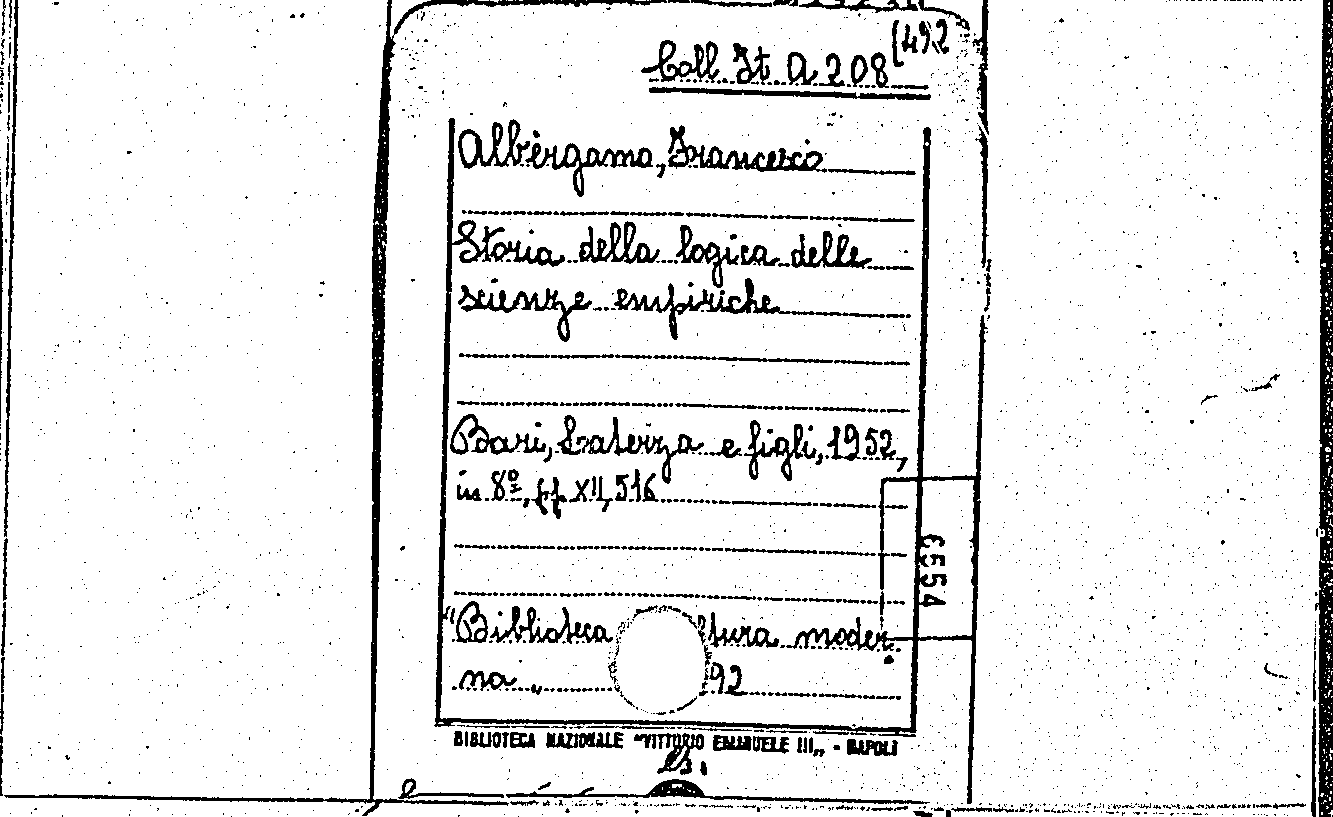 Coll. It. A 208 (492
Albèrgamo, Francesco
Storia della logica delle
scienze empiriche
Bari, Laterza e figli, 1952,
in 8º, pp. XII, 516
"Biblioteca ltura moder-
na „ 92
6554
BIBLIOTECA NAZIONALE "VITTORIO EMANUELE III„ - NAPOLI